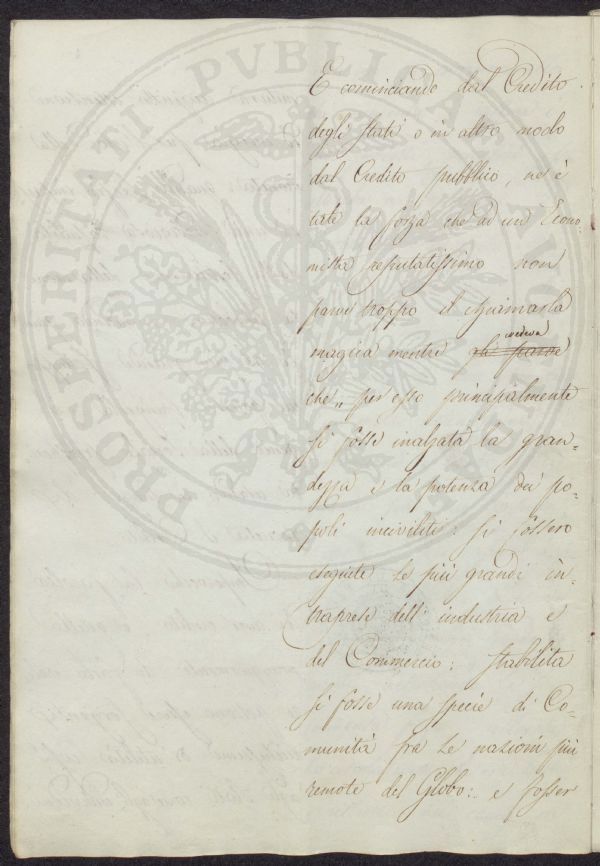 E cominciando dal Credito
degli Stati o in altro modo
dal Credito pubblico, ne è
tale la forza che ad un Econo
mista reputatissimo non
parve troppo il chiamarla
magica mentre gli parve vedeva
che „ per esso principalmente
si fosse inalzata la gran=
dezza e la potenza dei po=
poli inciviliti: si fossero
eseguite le più grandi in=
traprese dell' industria e
del Commercio: stabilita
si fosse una specie di Co=
munità fra le nazioni più
remote del Globo: e fosser
PROSPERITATI PVBLICAE AVGENDAE